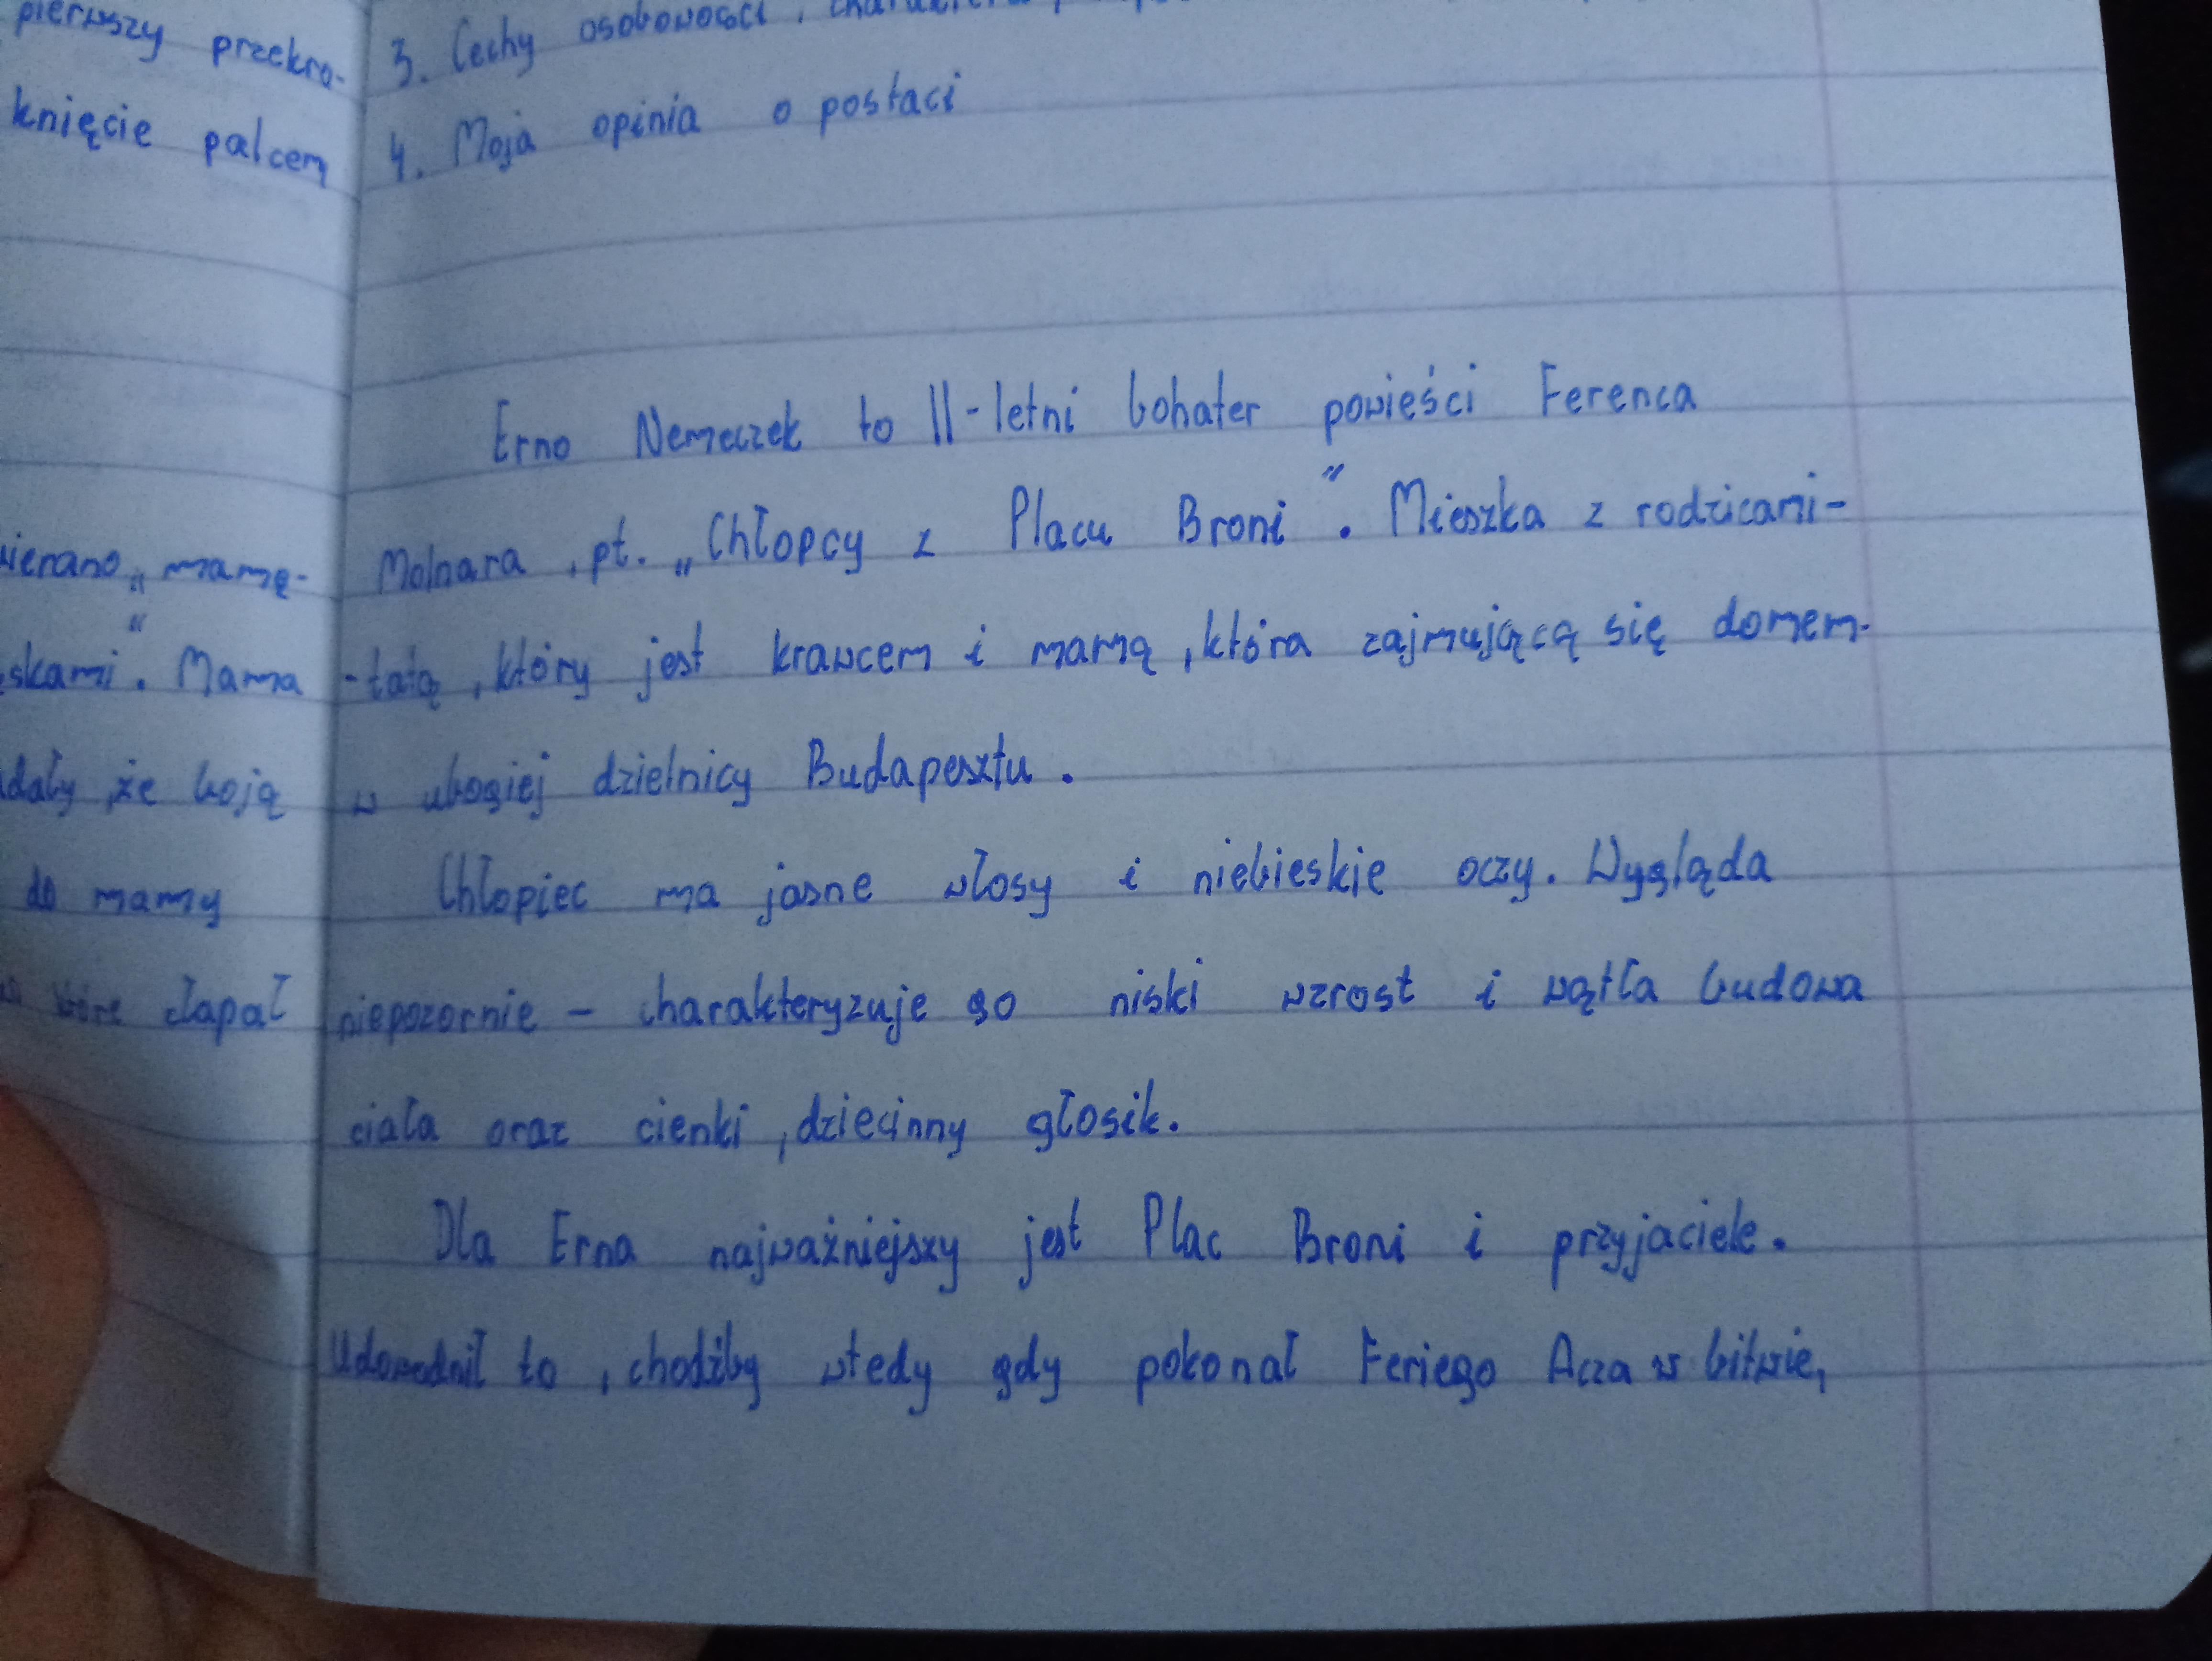 pierwszy przekro-
knięcie palcem
mamę-
skami". Mama
dały, że boją
do mamy
złapał
3. Cechy osobowości,
4. Moja opinia o postaci
Erno Nemeczek to 11-letni bohater powieści Ferenca
Molnara, pt. „Chłopcy z Placu Broni". Mieszka z rodzicami-
-tatą, który jest krawcem i mamą, która zajmującą się domem-
w ubogiej dzielnicy Budapesztu.
Chłopiec ma jasne włosy i niebieskie oczy. Wygląda
niepozornie - charakteryzuje go niski wzrost i wątła budowa
ciała oraz cienki, dziecinny głosik.
Dla Erna najważniejszy jest Plac Broni i przyjaciele.
Udowodnił to, chodźby wtedy gdy pokonał Feriego Acza w bitwie,